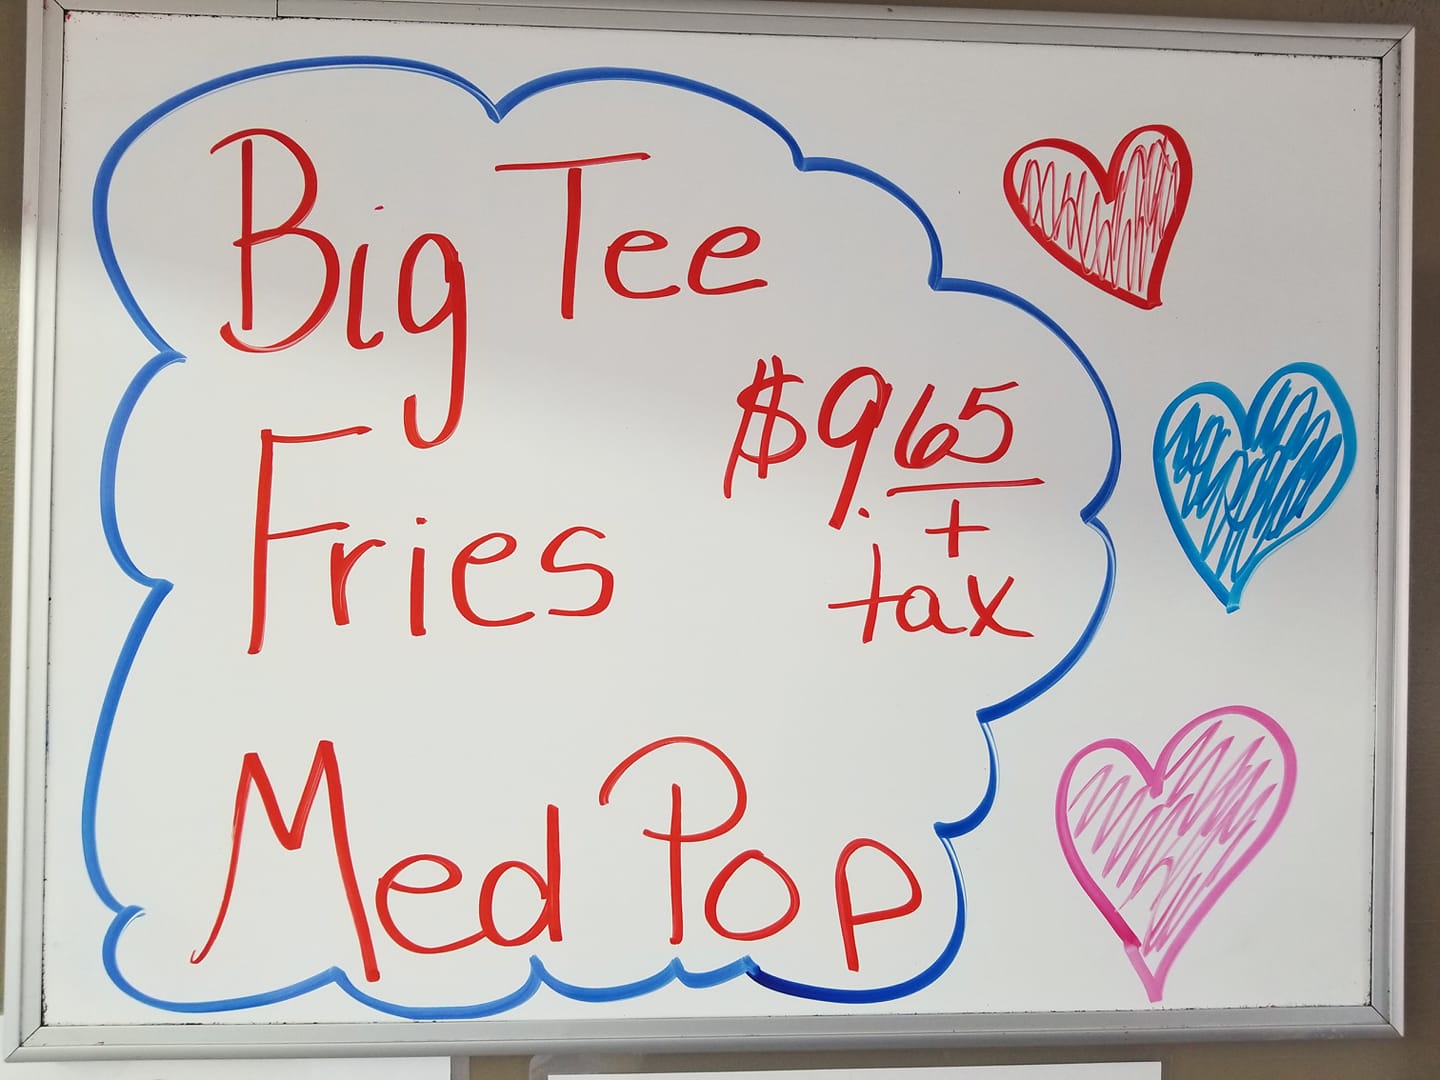 Big Tee
$9.65
Fries
+
tax
Med Pop